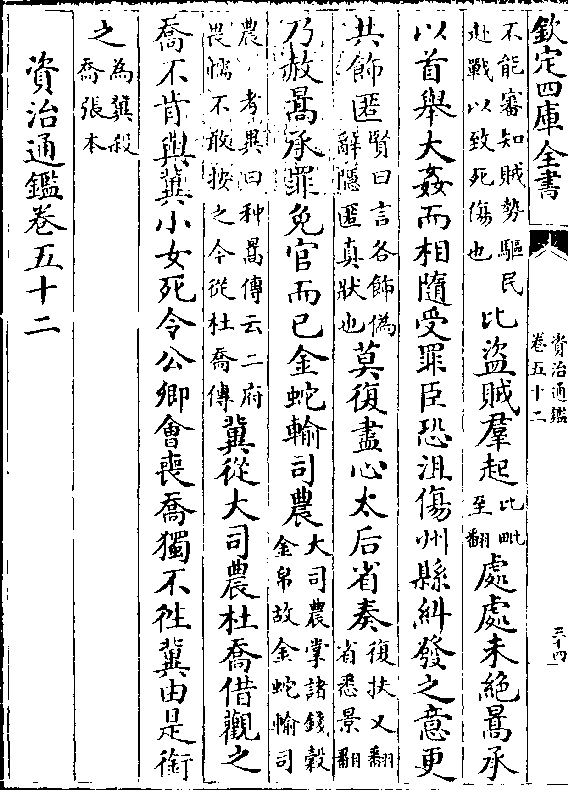 欽定四庫全書
資治通鑑
卷五十二
三十四
不能審知賊勢驅民
赴戰以致死傷也
比盜賊羣起
比毗
至翻
處處未絶暠承
以首舉大姦而相隨受罪臣恐沮傷州縣糾發之意更
共飾匿
賢曰言各飾偽
辭隱匿真狀也
莫復盡心太后省奏
復扶又翻
省悉景翻
乃赦暠承罪免官而已金蛇輸司農
大司農掌諸錢穀
金帛故金蛇輸司
農考異曰种暠傳云二府
畏懦不敢按之今從杜喬傳
冀從大司農杜喬借觀之
喬不肯與冀小女死令公卿會喪喬獨不往冀由是銜
之
為冀殺
喬張本
資治通鑑卷五十二